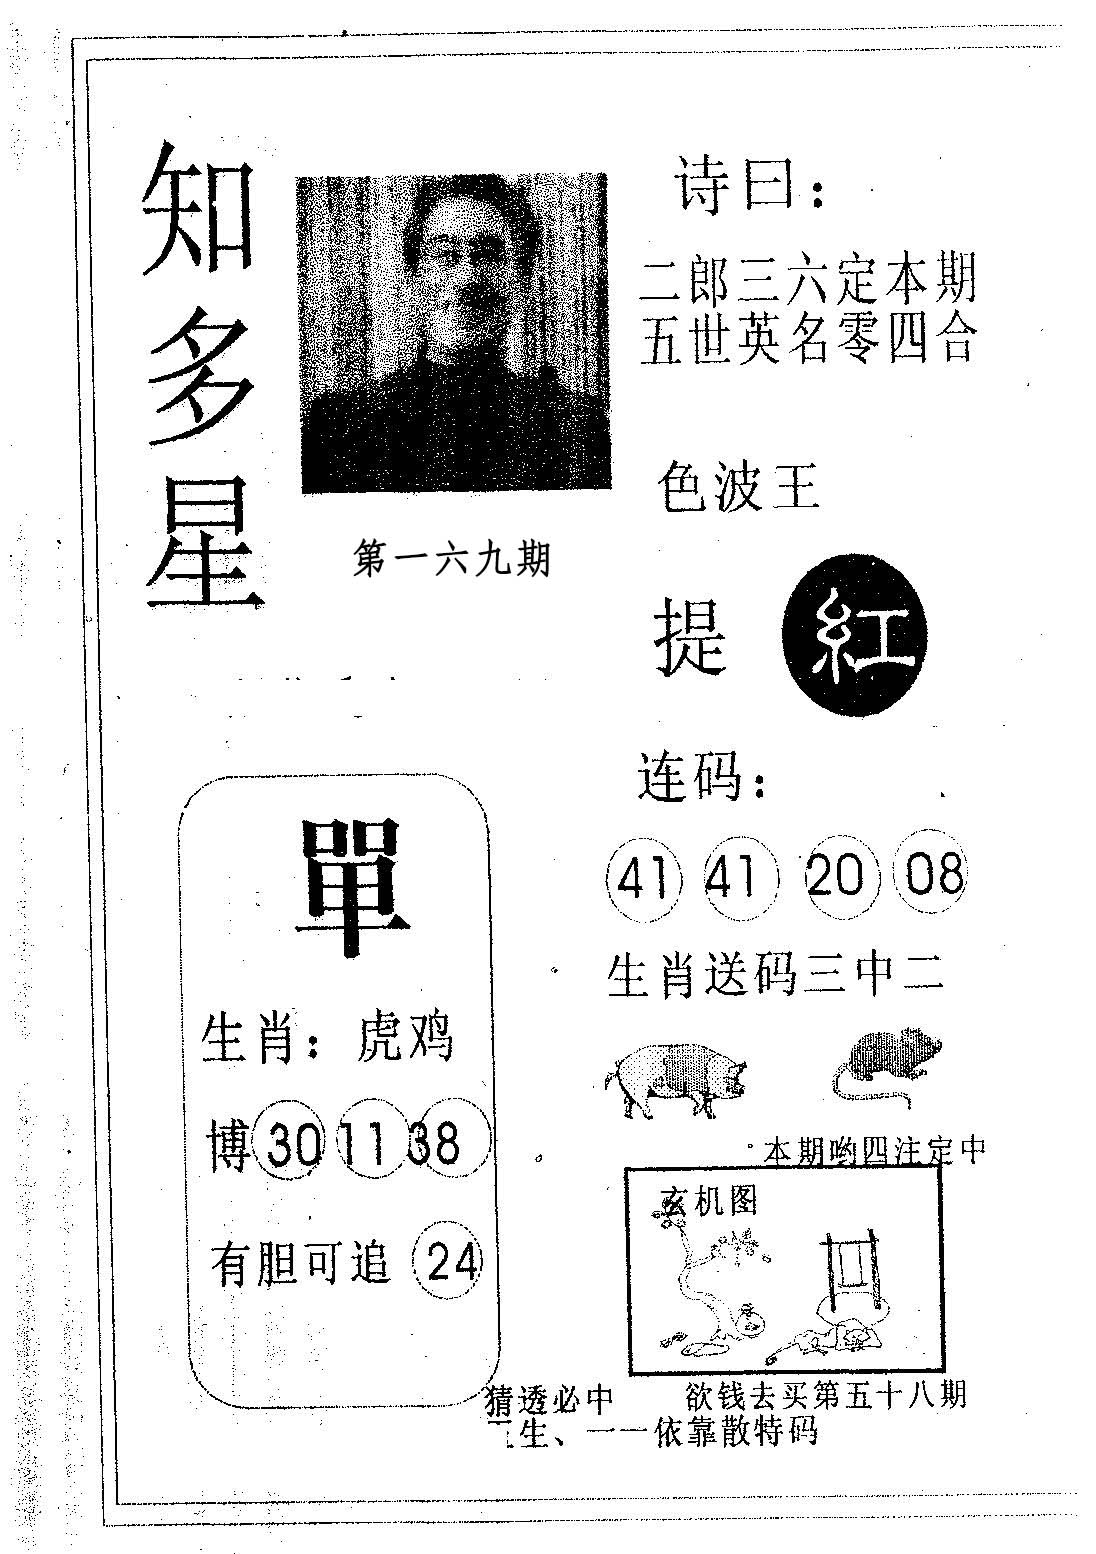 知多星
诗曰：
二郎三六定本期
五世英名零四合
色波王
第一六九期
提 紅
连码：
41 41 20 08
單
生肖送码三中二
生肖：虎鸡
博 30 11 38
本期哟四注定中
有胆可追 24
玄机图
猜透必中 欲钱去买第五十八期
生、一一依靠散特码